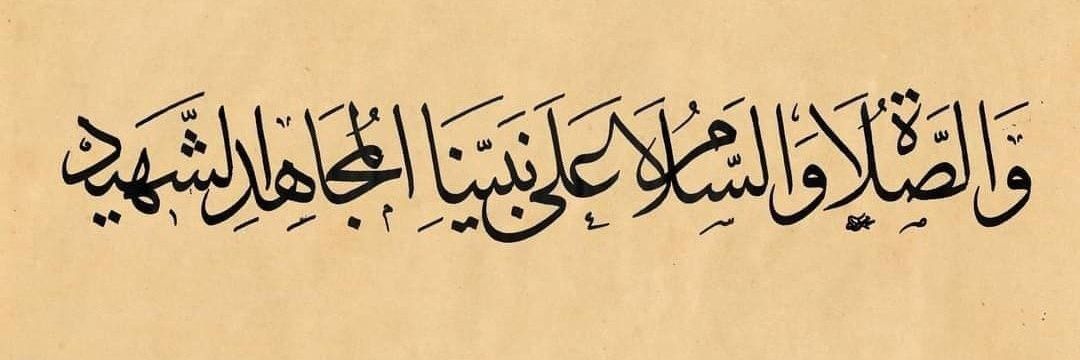 وَالصَّلَاةُ وَالسَّلَامُ عَلَى نَبِيِّنَا المُجَاهِدِ الشَّهِيد